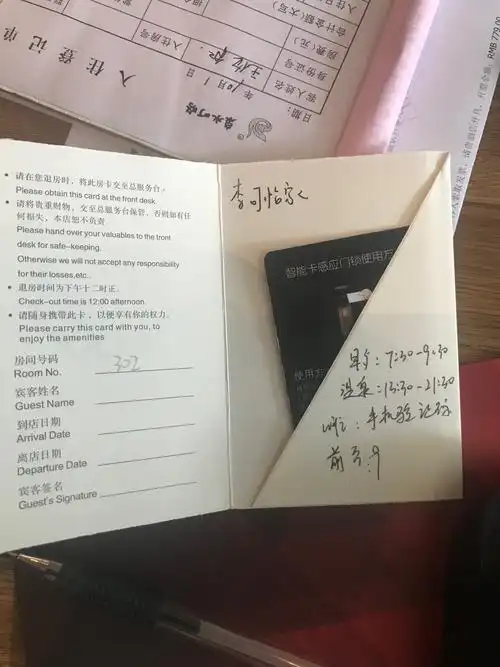 入住登记单
日期:
年10月1日
客人姓名
入住房号
身份证号
房费(元)
合计金额(大写)
RMB:779.00
• 请在您退房时，将此房卡交至总服务台。
Please obtain this card at the front desk.
• 请将贵重财物，交至总服务台保管，否则如有任
何损失，本店恕不负责
Please hand over your valuables to the tront
desk for safe-keeping.
Otherwise we will not accept any responsibility
for their losses,etc..
• 退房时间为下午十二时正。
Check-out time is 12;00 afternoon.
• 请随身携带此卡，以便享有你的权力。
Please carry this card with you, to
enjoy the amenities
房间号码
Room No. 302
宾客姓名
Guest Name
到店日期
Arrival Date
离店日期
Departure Date
宾客签名
Guest's Signature
李可怡家人
智能卡感应门锁使用方
使用方
早夕:7:30-9:30
温泉:13:30-21:30
wifi:手机验证码
前台:9